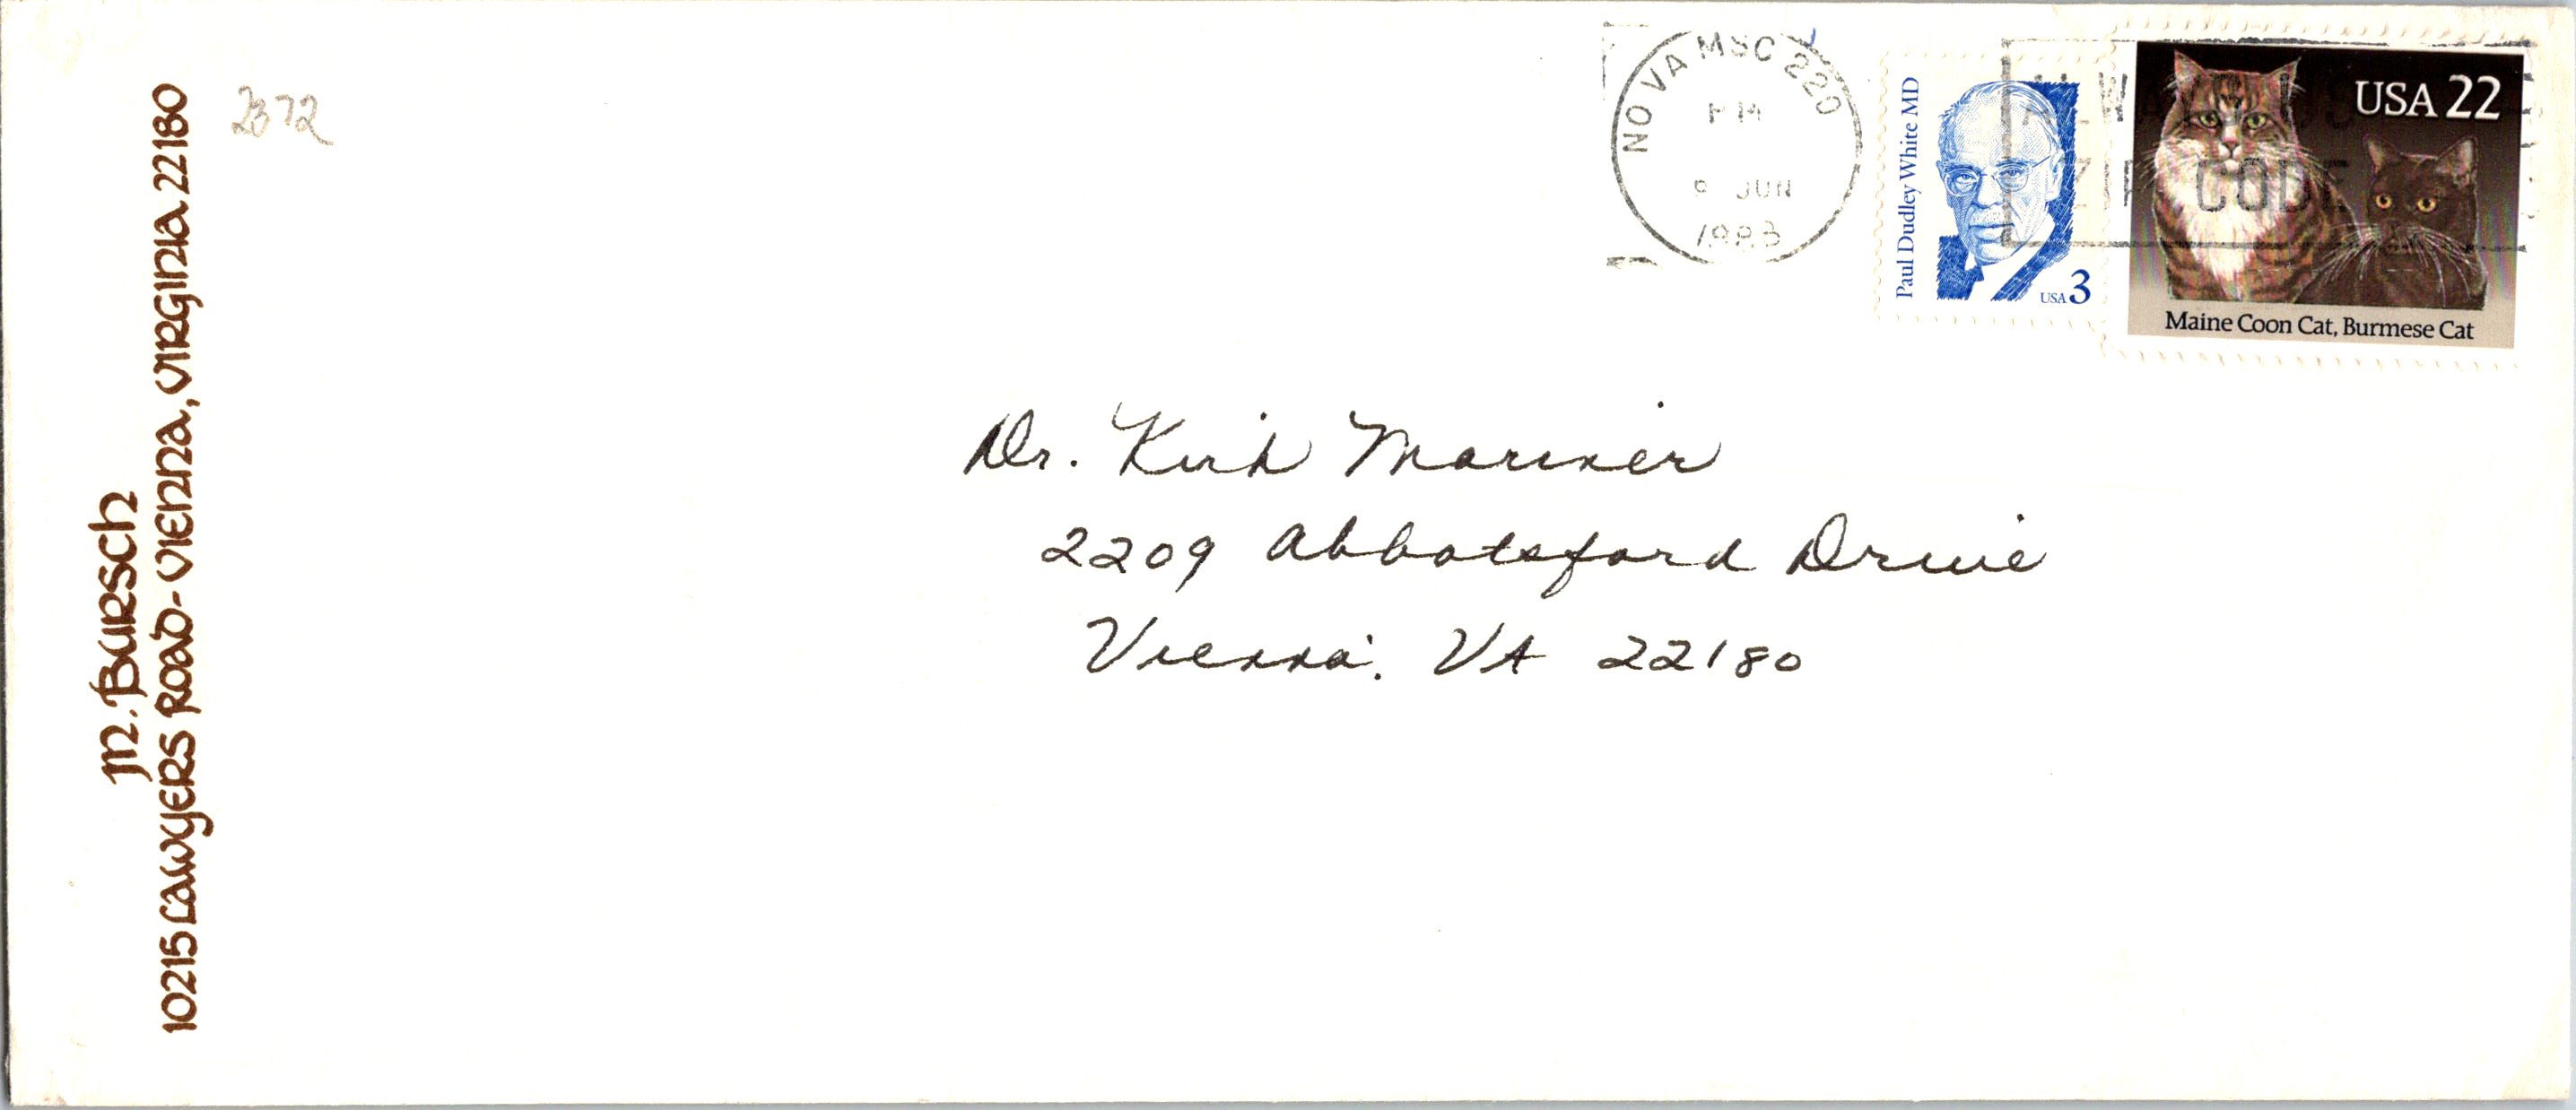 M. BURSCH
10215 LAWYERS ROAD - VIENNA, VIRGINIA 22180
2372
NO VA MSC 220
PM
9 JUN
1988
ALWAYS US
ZIP CODE
Paul Dudley White MD
USA 3
USA 22
Maine Coon Cat, Burmese Cat
Dr. Kirk Mariner
2209 Abbotsford Drive
Vienna, VA 22180